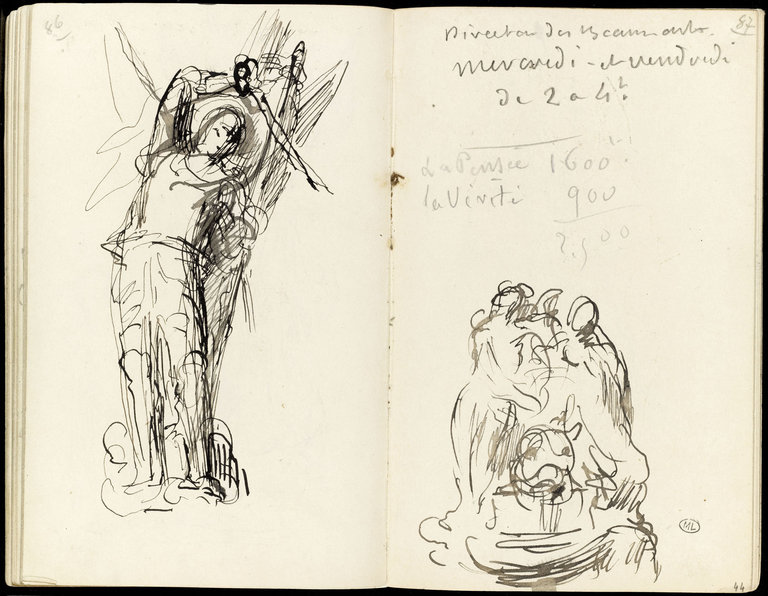 86
87
Directeur des Beaux arts.
mercredi - et vendredi
de 2 a 4h.
La Pensée 1600
la Vérité 900
2,500
ML
44